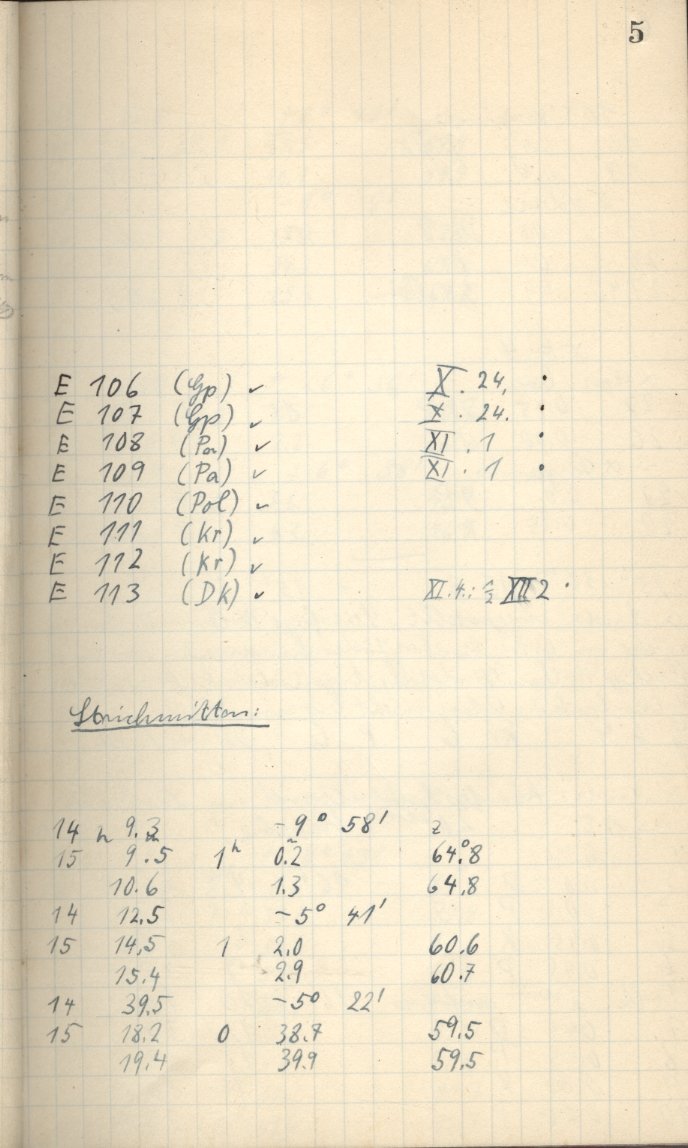 5
E 106 (Gp) ✓ X. 24. •
E 107 (Gp) ✓ X. 24. •
E 108 (Pa) ✓ XI. 1 •
E 109 (Pa) ✓ XI. 1 •
E 110 (Pol) ✓
E 111 (Kr) ✓
E 112 (Kr) ✓
E 113 (Dk) ✓ XI. 4.: XII 2 •
Strichmitten:
14 h 9.3 -9° 58' z
15 9.5 1h 0.2 64°.8
10.6 1.3 64.8
14 12.5 -5° 41'
15 14.5 1 2.0 60.6
15.4 2.9 60.7
14 39.5 -5° 22'
15 18.2 0 38.7 59.5
19.4 39.9 59.5